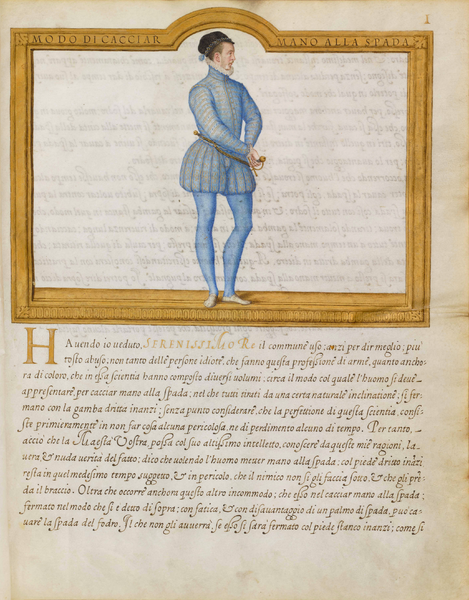 1
MODO DI CACCIAR MANO ALLA SPADA
HAuendo io ueduto, SERENISSIMO RE il commune uso; anzi per dir meglio; piu
tosto abuso, non tanto delle persone idiote, che fanno questa professione di arme, quanto ancho-
ra di coloro, che in essa scientia hanno composto diuersi uolumi; circa il modo col quale l'huomo si deue
appresentare, per cacciar mano alla spada; nel che tutti tirati da una certa naturale inclinatione, si fer
mano con la gamba dritta inanzi; senza punto considerare, che la perfettione di questa scientia, consi-
ste primieramente in non far cosa alcuna pericolosa, ne di perdimento alcuno di tempo. Per tanto,
acciò che la Maestà Vostra, possa col suo altissimo intelletto, conoscere da queste mie ragioni, la
uera, & nuda uerità del fatto; dico che uolendo l'huomo metter mano alla spada; col piede dritto inãzi
resta in quel medesimo tempo suggetto, & in pericolo, che il nimico non si gli faccia sotto, & che gli prẽ-
da il braccio. Oltra che occorre anchora questo altro incommodo; che esso nel cacciar mano alla spada;
fermato nel modo che si è detto di sopra; con fatica, & con disauantaggio di un palmo di spada, può ca-
uare la spada del fodro. Il che non gli auuerrà, se esso si sarà fermato col piede stanco inanzi; come si